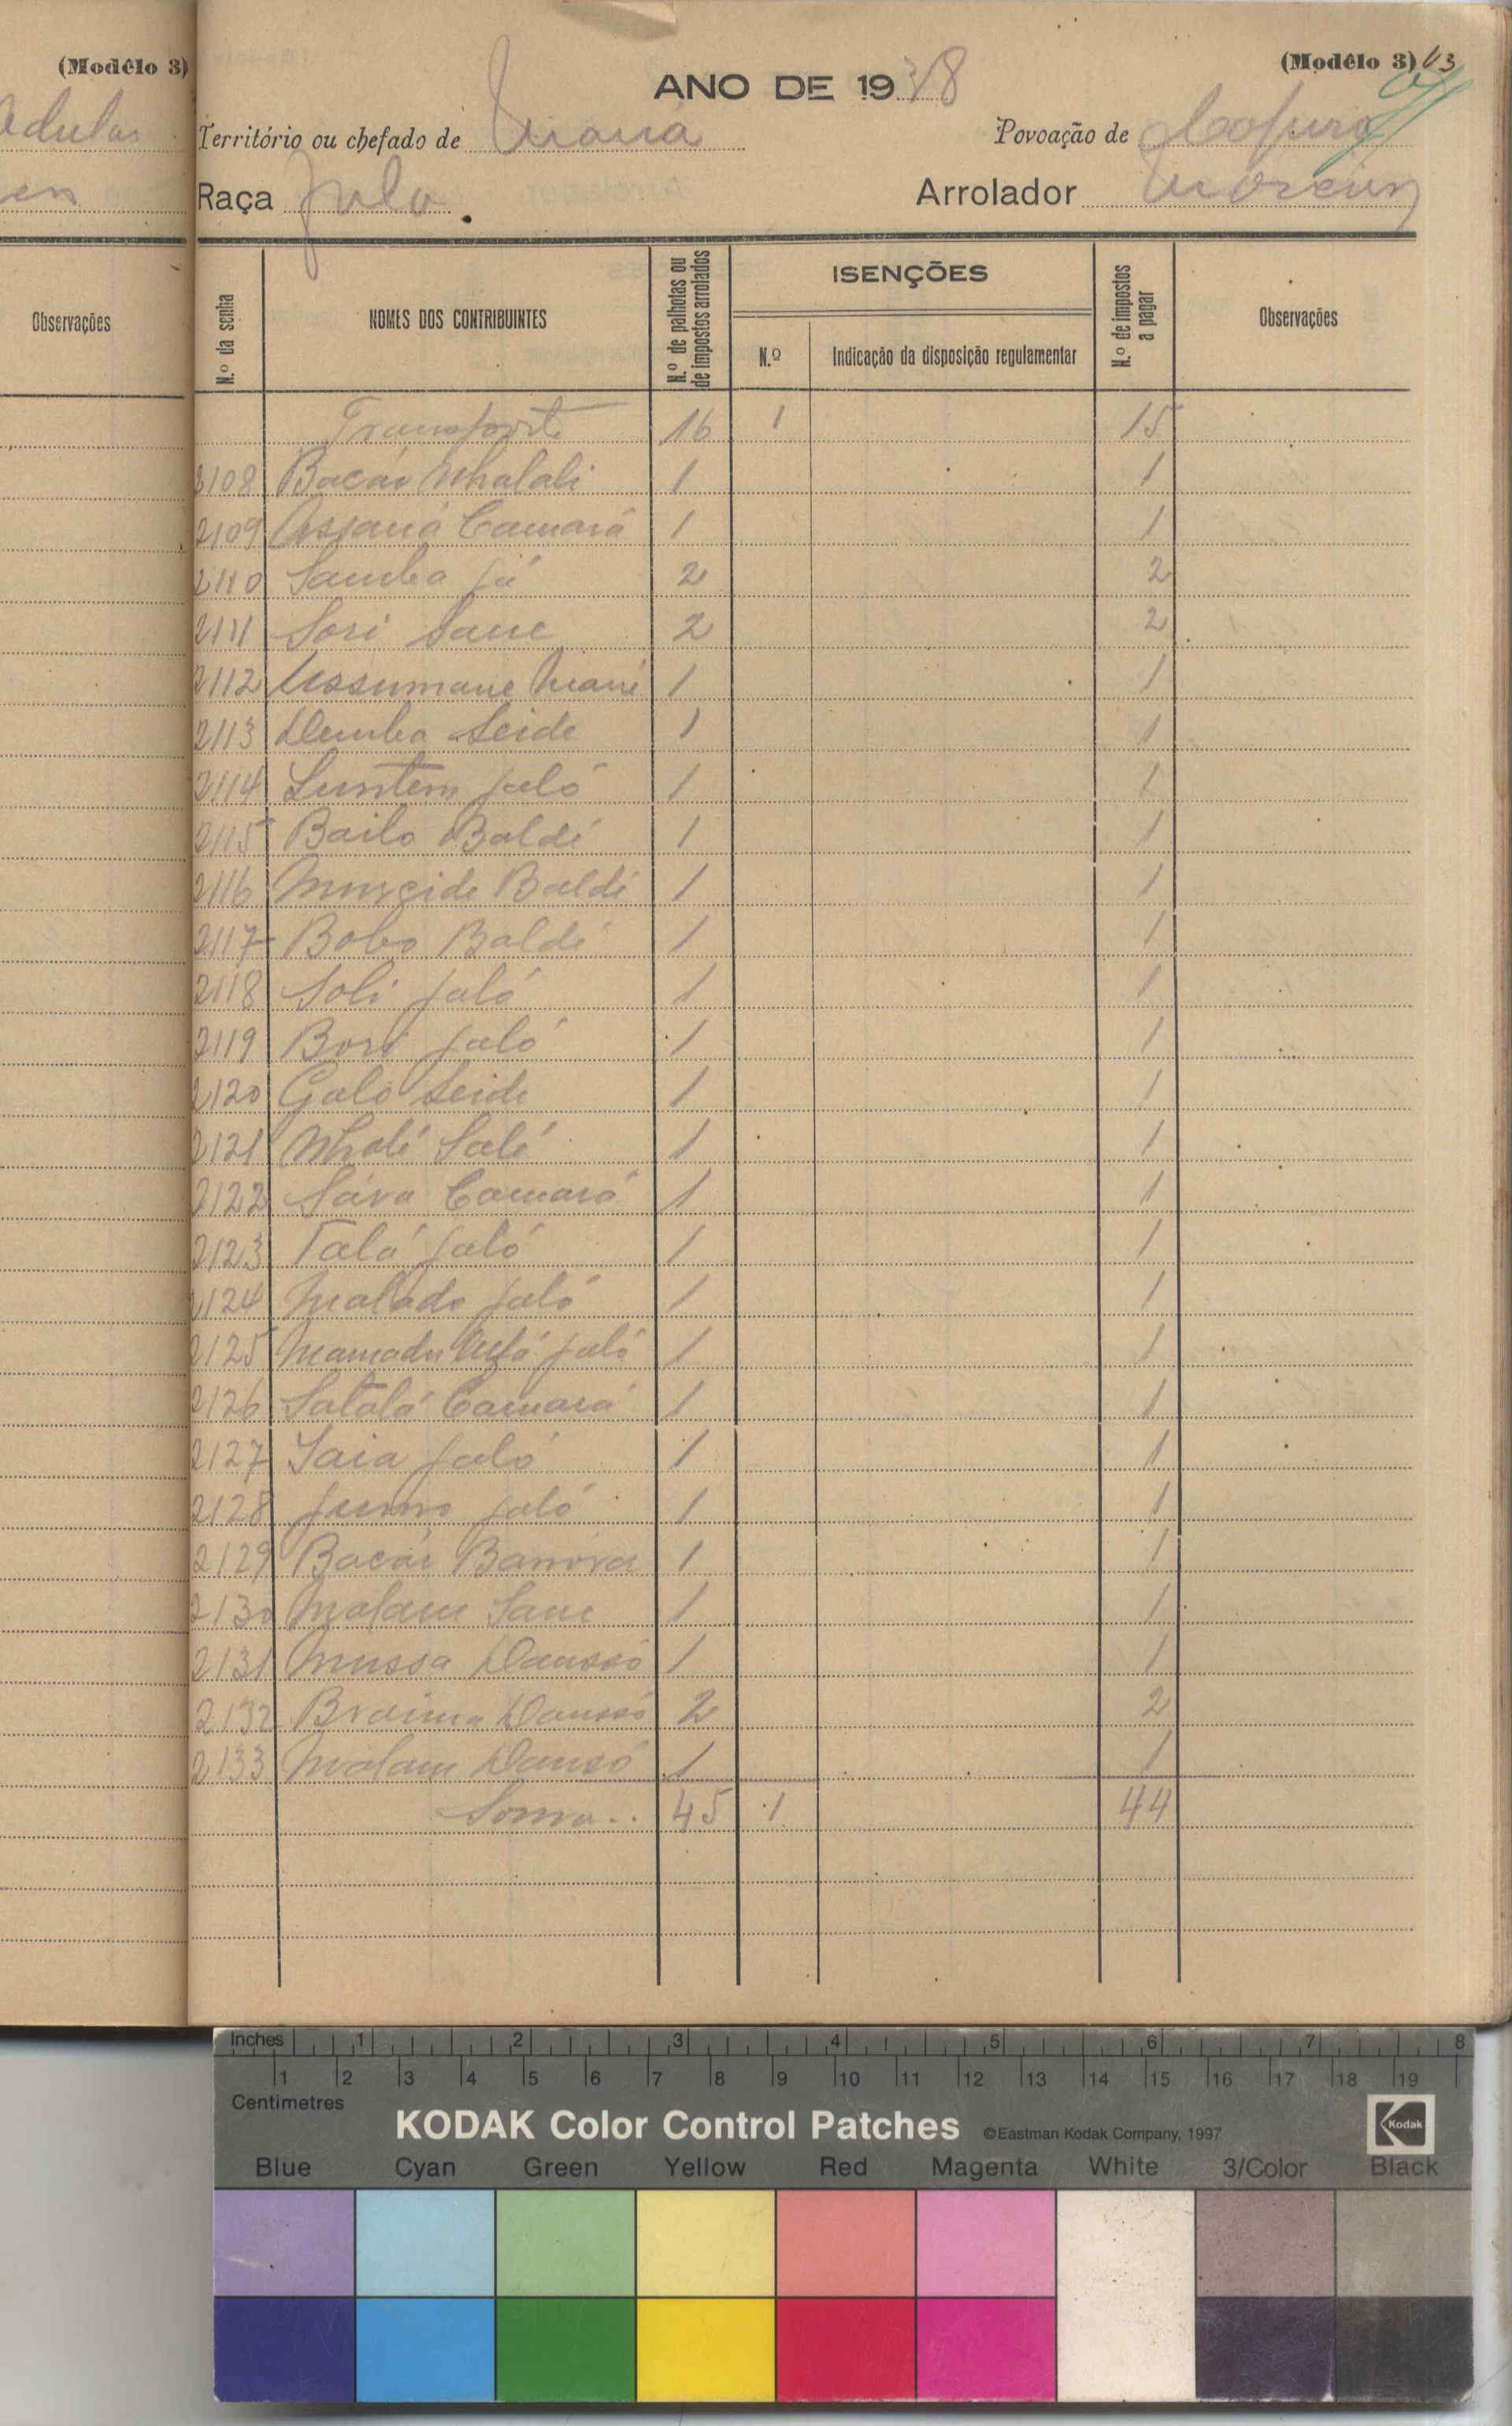 (Modêlo 3)
Observações
(Modêlo 3) 63
ANO DE 1938
Território ou chefado de Povoação de
Raça Fula. Arrolador Moreira
N.º da senha NOMES DOS CONTRIBUINTES N.º de palhotas ou de impostos arrolados ISENÇÕES N.º Indicação da disposição regulamentar N.º de impostos a pagar Observações
Transporte 16 1 15
2108 Bacar 1 1
2109 Camará 1 1
2110 Samba Já 2 2
2111 Sori Sane 2 2
2112 Assumane Mané 1 1
2113 Demba Seide 1 1
2114 Jaló 1 1
2115 Bailo Baldé 1 1
2116 Baldé 1 1
2117 Bobo Baldé 1 1
2118 Soli Jaló 1 1
2119 Bori Jaló 1 1
2120 Galo Seide 1 1
2121 1 1
2122 Camará 1 1
2123 Talá Jaló 1 1
2124 Malado Jaló 1 1
2125 Mamadu Jaló 1 1
2126 Satalá Camará 1 1
2127 Iaia Jaló 1 1
2128 Jaló 1 1
2129 Bacar 1 1
2130 Malam Sane 1 1
2131 Mussa Dansó 1 1
2132 Braima Dansó 2 2
2133 Malam Dansó 1 1
Soma.. 45 1 44
Inches 1 2 3 4 5 6 7 8
1 2 3 4 5 6 7 8 9 10 11 12 13 14 15 16 17 18 19
Centimetres
KODAK Color Control Patches ©Eastman Kodak Company, 1997 Kodak
Blue Cyan Green Yellow Red Magenta White 3/Color Black